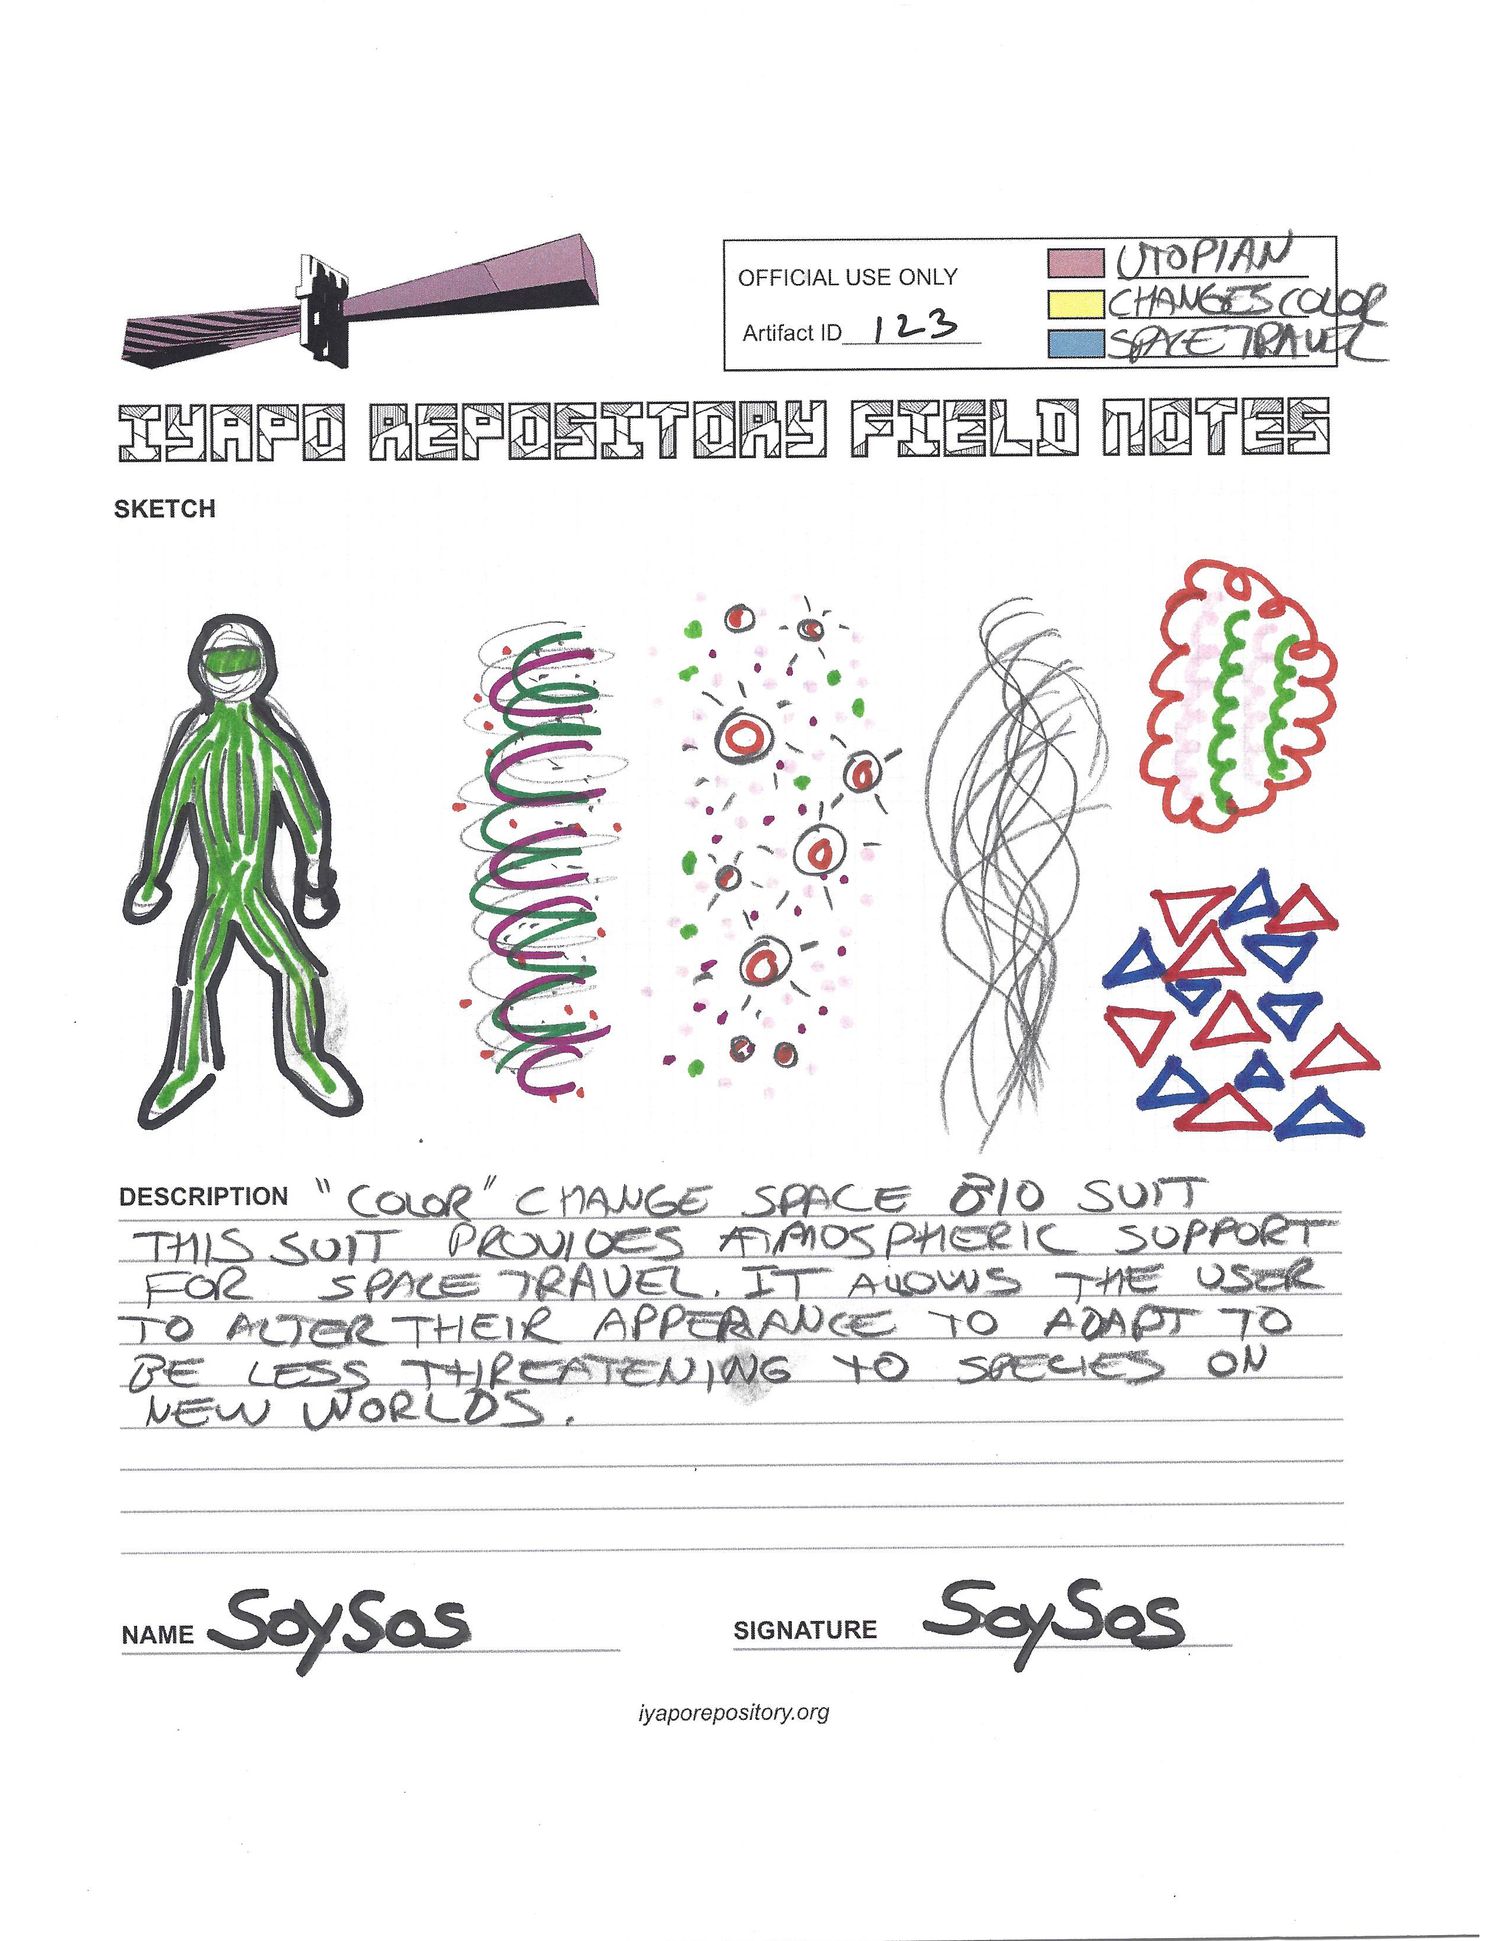 OFFICIAL USE ONLY
Artifact ID 123
UTOPIAN
CHANGES COLOR
SPACE TRAVEL
IYAPO REPOSITORY FIELD NOTES
SKETCH
DESCRIPTION "COLOR" CHANGE SPACE BIO SUIT
THIS SUIT PROVIDES ATMOSPHERIC SUPPORT
FOR SPACE TRAVEL. IT ALLOWS THE USER
TO ALTER THEIR APPERANCE TO ADAPT TO
BE LESS THREATENING TO SPECIES ON
NEW WORLDS.
NAME SoySos
SIGNATURE SoySos
iyaporepository.org